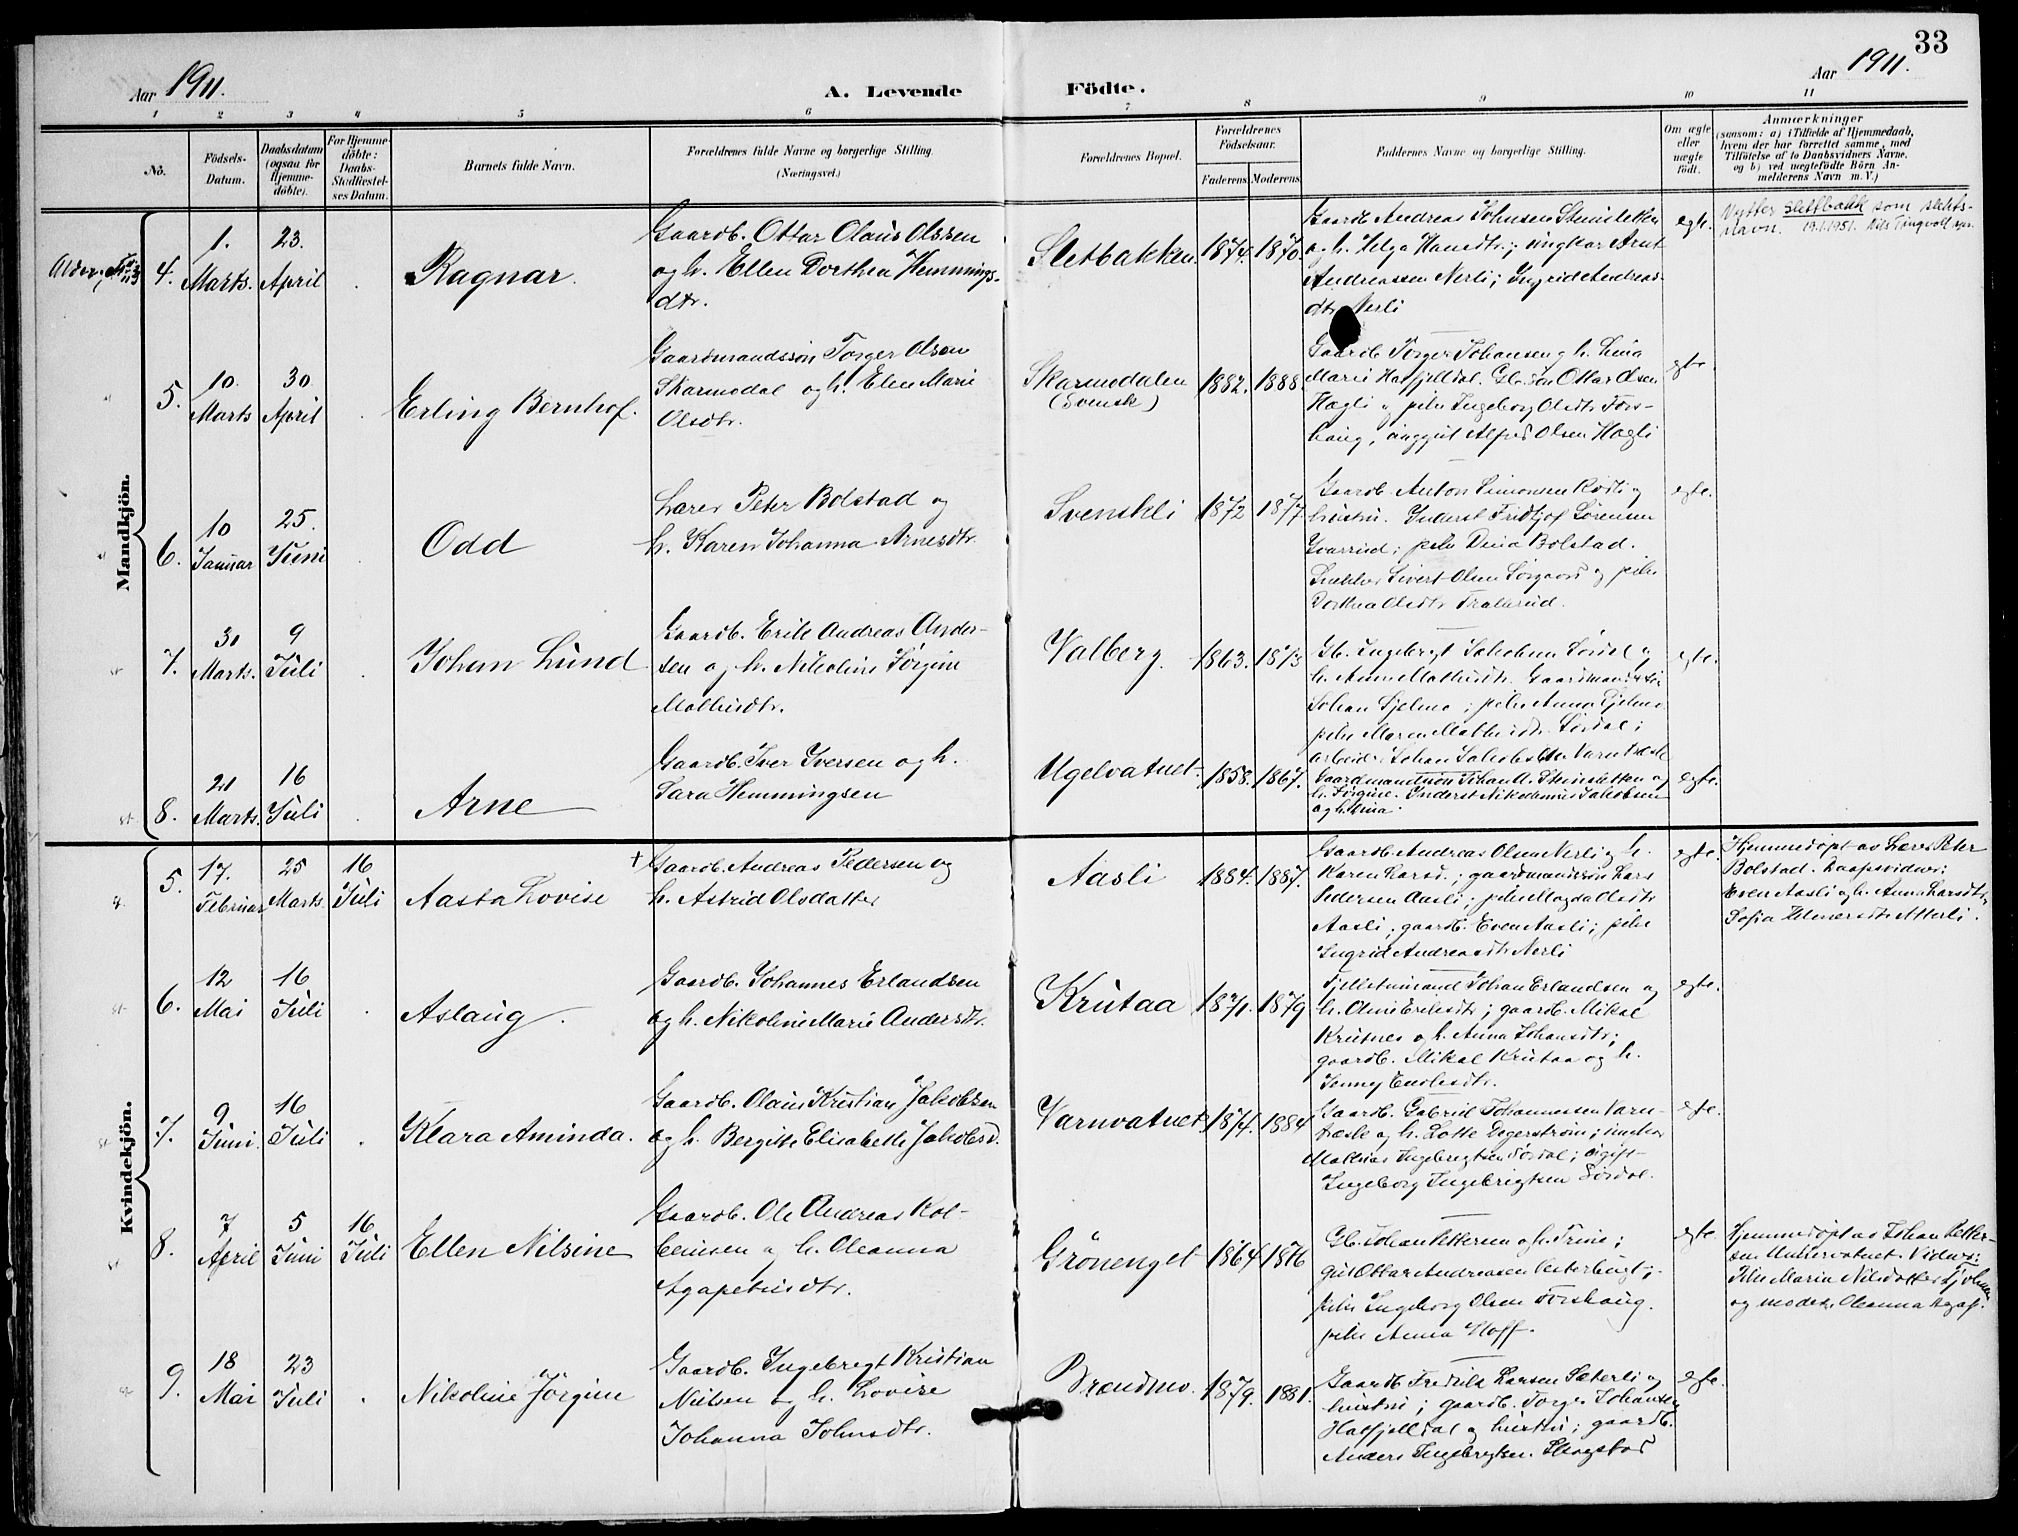 33
Aar 1911.
A. Levende
Födte.
Aar 1911.
1 2 3 4 5 6 7 8 9 10 11
No.
Födsels-
Datum.
Daabsdatum
(ogsaa for
Hjemme-
döbte).
For Hjemme-
döbte:
Daabs-
Stadfæstel-
ses Datum.
Barnets fulde Navn.
Forældrenes fulde Navne og borgerlige Stilling.
(Næringsvei.)
Forældrenes Bopæl.
Forældrenes
Födselsaar.
Faderens
Moderens
Faddernes Navne og borgerlige Stilling.
Om ægte
eller
uægte
födt.
Anmærkninger
(saasom: a) i Tilfælde af Hjemmedaab,
hvem der har forrettet samme, med
Tilföielse af to Daabsvidners Navne,
og b) ved uægtefödte Börn An-
melderens Navn m. V.)
Mandkjön.
4.
1.
Marts.
23.
April
Ragnar.
Gaardb. Ottar Olaus Olssen
og h. Ellen Dorthea Hemmings-
dtr.
Sletbakken
1874.
1870.
Gaardb. Andreas Johnsen Stensletten
og h. Helga Hansdtr.; ungkar Arnt
Andreassen Nerli; Ingrid Andreas-
dtr. Nerli
egte.
Nytter Slettbakk som slekts-
navn. 19.1.1951. Nils Tingvoll spr.
5.
10.
Marts
30
April
Erling Bernhof.
Gaardmandssön Torger Olsen
Skarmodal og h. Elen Marie
Olsdtr.
Skarmodalen
(Svensk)
1882.
1888.
Gaardb. Torger Johansen og h. Lina
Marie Hatfjelldal. Gb. sön Ottar Olsen
Hægli og pike Ingeborg Olsdtr. Fors-
haug, unggut Alfred Olsen Hægli
egte.
6.
10
Januar
25.
Juni
Odd
Lærer Peter Bolstad og
h. Karen Johanna Arnesdtr.
Svenskli
1872
1877.
Gaardb. Anton Simonsen Rødli og
hustru. Inderst Fridtjof Sørensen
Svarrud; pike Dina Bolstad.
Sivert Olsen Sørgaard og pike
Dorthea Olsdtr.
egte.
7.
30
Marts.
9
Juli
Johan Lund
Gaardb. Erik Andreas Ander-
sen og h. Nikoline Jörgine
Mathisdtr.
Valberg.
1863.
1873
Gb. Ingebrigt Jakobsen Sørdal og
h. Anne Mathisdtr. Gaardmandssön
Johan Fjelmo; pike Anna Fjelmo
pike Maren Mathisdtr. Sørdal;
arbeider Johan Jakobsen Varntræsk
egte.
8.
21
Marts.
16
Juli
Arne
Gaardb. Iver Iversen og h.
Sara Hemmingsen
Ugelvatnet.
1858.
1867.
Gaardmandssön Johan O. Stensletten og
h. Jørgine. Inderst Nikodemus Jakobsen
og h. Lina.
egte.
Kvindekjön.
5.
17.
Februar
25
Marts
16
Juli
Aasta Lovise
Gaardb. Andreas Pedersen og
h. Astrid Olsdatter
Aasli
1884.
1887.
Gaardb. Andreas Olsen Nerli og h.
Karen Larsd.; gaardmandssön Lars
Pedersen Aasli; pike Magda Olsdtr.
Aasli; gaardb. Even Aasli; pike
Ingrid Andreasdtr. Nerli
egte.
Hjemmedøpt av Lærer Peter
Bolstad. Daapsvidner:
Even Aasli og h. Anna Larsdtr.
Sofia
6.
12
Mai
16
Juli
Aslaug.
Gaardb. Johannes Erlandsen
og h. Nikoline Marie Andersdtr.
Krutaa
1871.
1879
Fjeldstuemand Johan Erlandsen og
h. Oline Eriksdtr.; gaardb. Mikal
Krutnes og h. Anna Johansdtr.;
gaardb. Mikal Krutaa og h.
Jenny
egte.
7.
9
Juni.
16
Juli
Klara Aminda.
Gaardb. Olaus Kristian Jakobsen
og h. Bergitte Elisabeth Jakobsd.
Varnvatnet
1874.
1884
Gaardb. Gabriel Johannessen Varn-
træsk og h. Lotte Degerström; unkar
Mathias Ingebrigtsen Sørdal; ugift
Ingeborg Ingebrigtsen Sørdal.
egte.
8.
7
April
5
Juni
16
Juli
Ellen Nilsine
Gaardb. Ole Andreas Kol-
beinsen og h. Oleanna
Agapetusdtr.
Grönenget
1864
1876
Gb. Johan Pettersen og h. Trine;
gut Ottar Andreasen Vesterbugt;
pike Ingeborg Olsen Forshaug.
pike Anna Hoff.
egte
Hjemmedøpt av Johan Petter-
sen Unkervatnet. Vidner:
Pike Maria Nilsdatter Fjelmo
og moder Oleanna Agap.
9.
18
Mai
23
Juli
Nikoline Jörgine
Gaardb. Ingebregt Kristian
Nielsen og h. Lovise
Johanna Johnsdtr.
Brændmo.
1879.
1881.
Gaardb. Fredrik Larsen Sæterli og
hustru; gaardb. Torger Johansen
Hatfjelldal og hustru; gaardb.
Anders Ingebrigtsen Skogstad
egte.